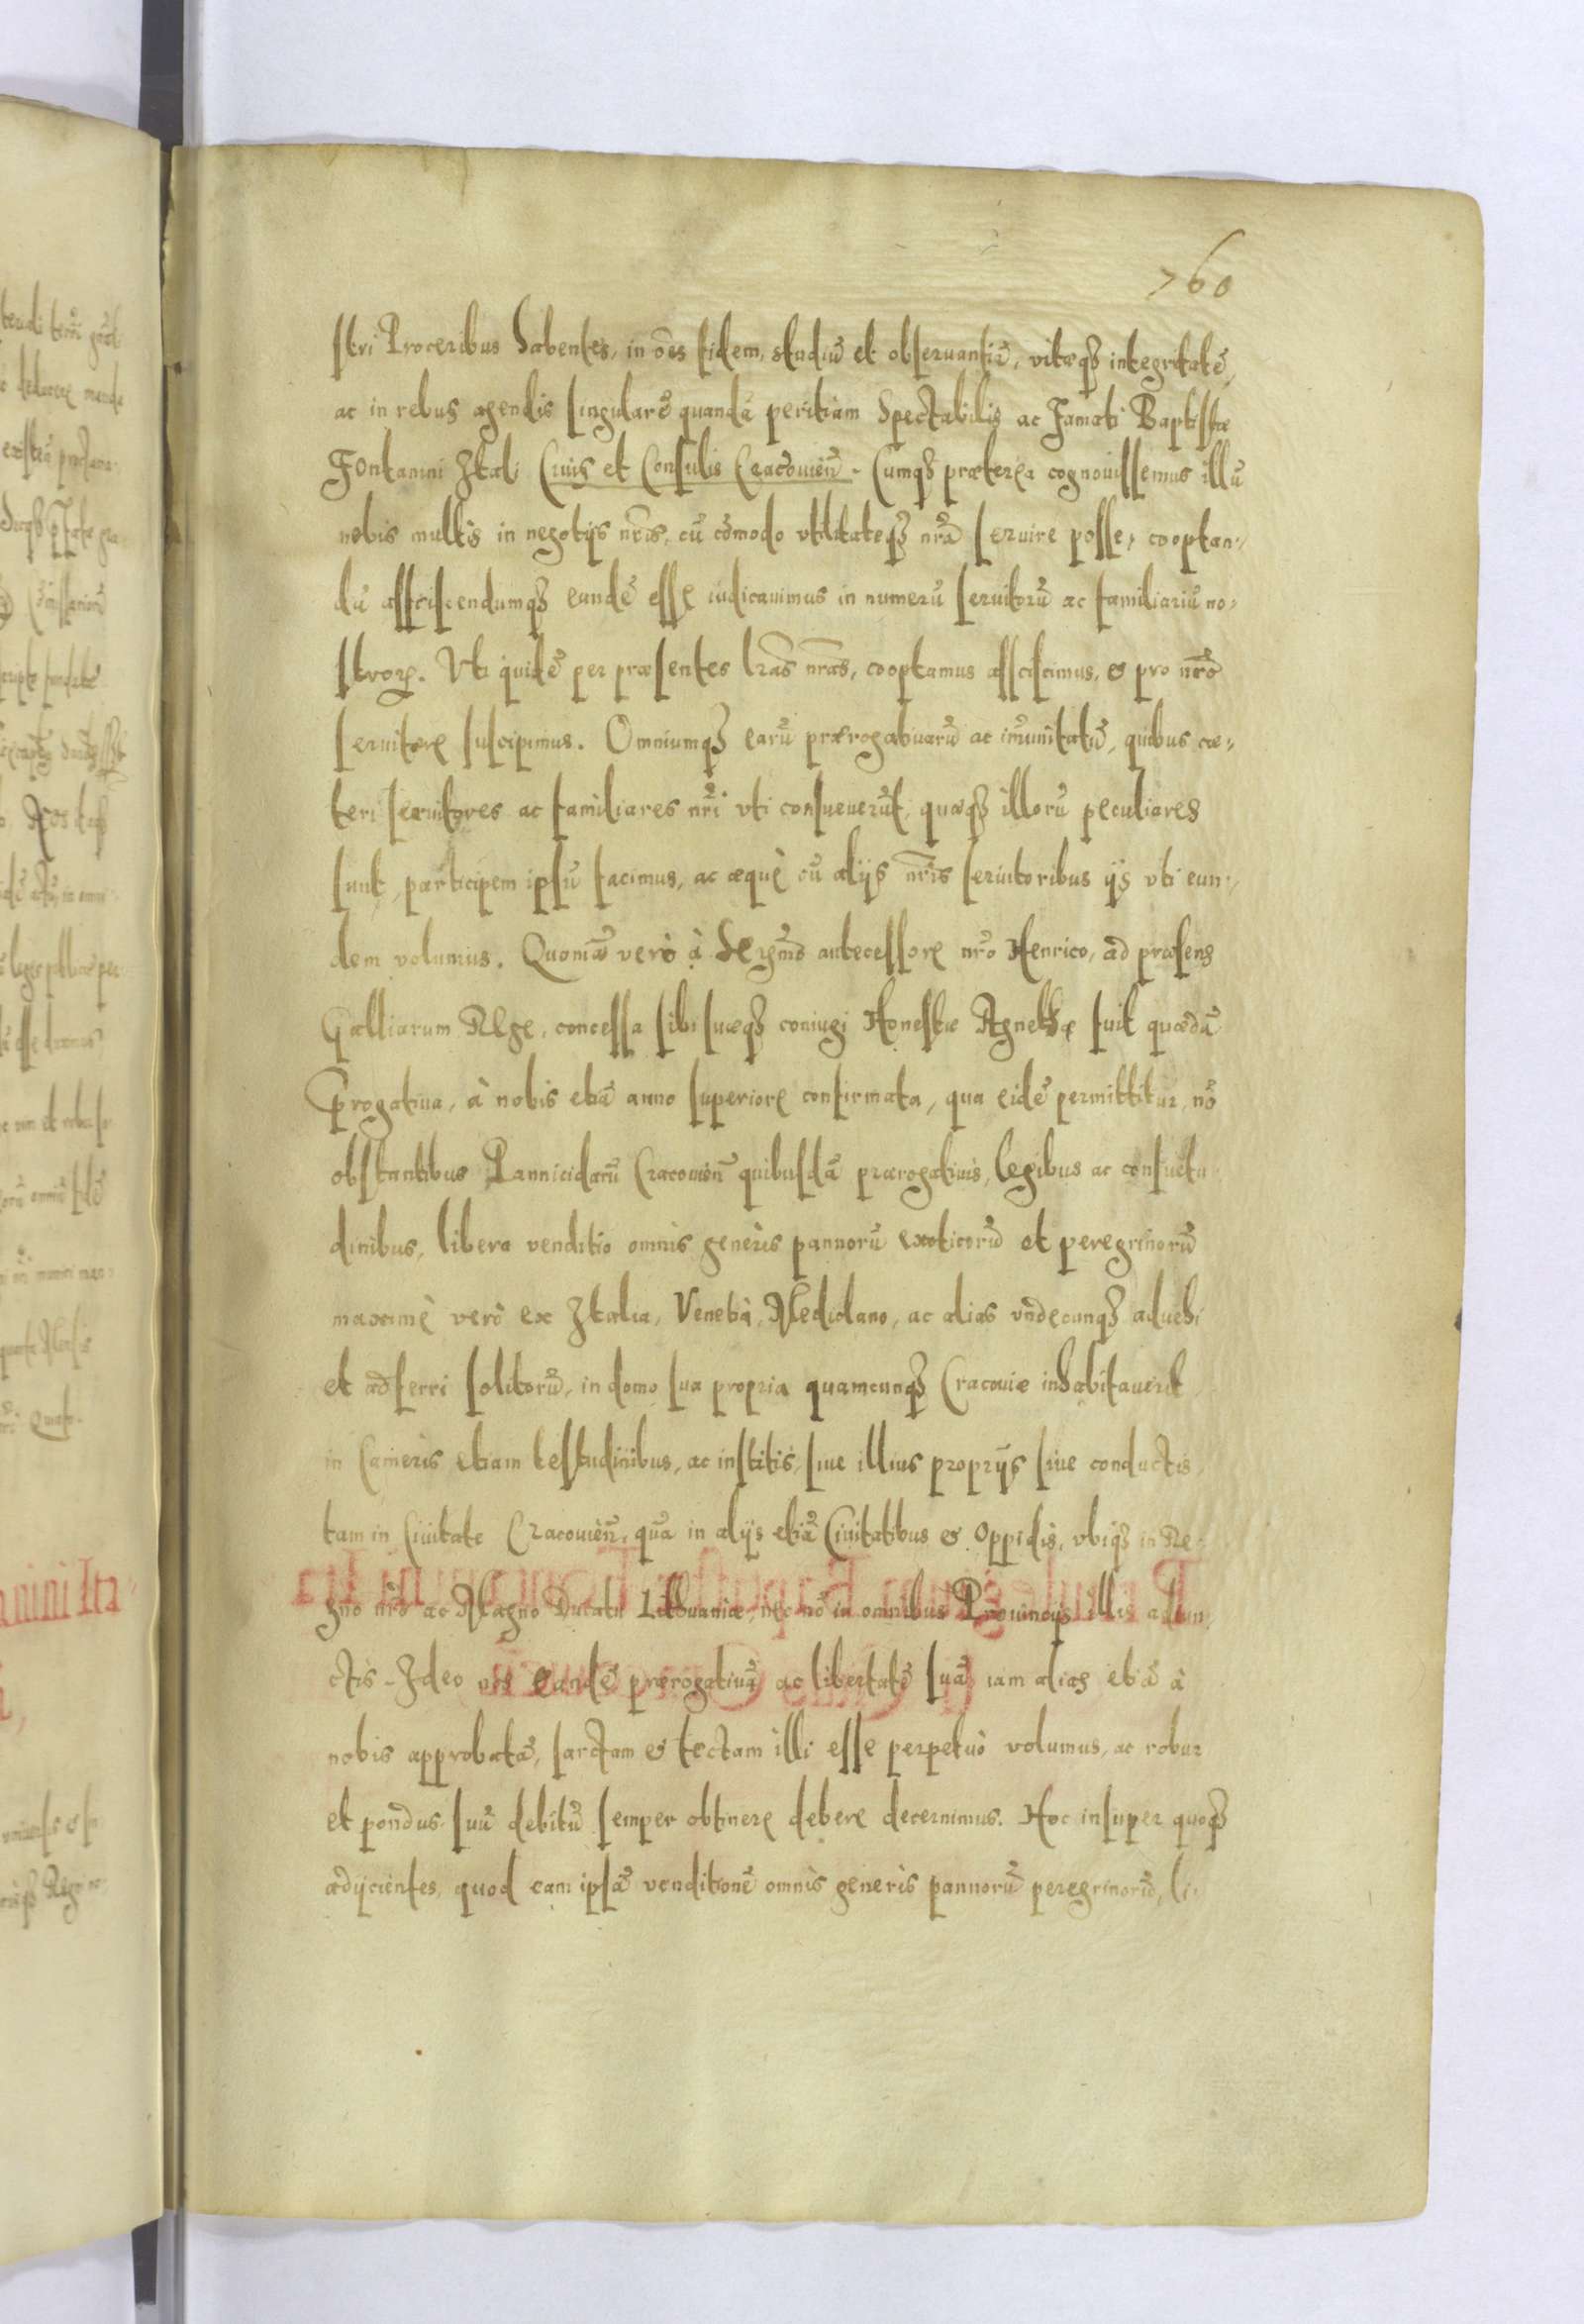 760
stri Proceribus habentes, in oẽs fidem, studiũ et obseruantiã, vitæqꝫ integritatẽ,
ac in rebus agendis singularẽ quandã peritiam Spectabilis ac Famati Baptistæ
Fontanini Itali Ciuis et Consulis Cracouień. Cumqꝫ præterea cognouissemus illũ
nobis multis in negotijs nr̃is, cũ cõmodo vtilitateqꝫ nr̃a seruire posse, cooptan-
dũ asscissendumqꝫ eundẽ esse iudicauimus in numerũ seruitorũ ac familiariũ no-
stroꝝ. Vti quidẽ per præsentes lr̃as nr̃as, cooptamus asscissimus, & pro nr̃o
seruitore suscipimus. Omniumqꝫ earũ prærogatiuarũ ac im̃unitatũ, quibus cæ-
teri seruitores ac familiares nr̃i vti consueuerũt, quæqꝫ illorũ peculiares
sunt, participem ipsũ facimus, ac æquè cũ alijs nr̃is seruitoribus ijs vti eun-
dem volumus. Quoniã verò à Serm̃o antecessore nr̃o Henrico, ad præsens
Galliarum Rege, concessa sibi suæqꝫ coniugi Honestæ Agnethæ fuit quædã
p̱rogatiua, à nobis etiã anno superiore confirmata, qua eidẽ permittitur, nõ
obstantibus Pannicidarũ Cracouień quibusdã prærogatiuis, legibus ac consuetu
dinibus, libera venditio omnis generis pannorũ exoticorũ et peregrinorũ
maximè verò ex Italia, Venetia, Mediolano, ac alias vndecunqꝫ aduehi
et adferri solitorũ, in domo sua propria quamcunqꝫ Cracouiæ inhabitauerit
in Cameris etiam testudinibus, ac institis, siue illius proprijs siue conductis,
tam in Ciuitate Cracouień, quã in alijs etiã Ciuitatibus & Oppidis, vbiqꝫ in Re-
gno nr̃o ac Magno Ducatu Lithuaniæ, nec nõ in omnibus Prouincijs illis adiun
ctis. Ideo nos eandẽ prærogatiuã ac libertatẽ suã iam alias etiã à
nobis approbatã, sartam & tectam illi esse perpetuò volumus, ac robur
et pondus suũ debitũ semper obtinere debere decernimus. Hoc insuper quoqꝫ
adijcientes, quod eam ipsã venditionẽ omnis generis pannorũ peregrinorũ, li-